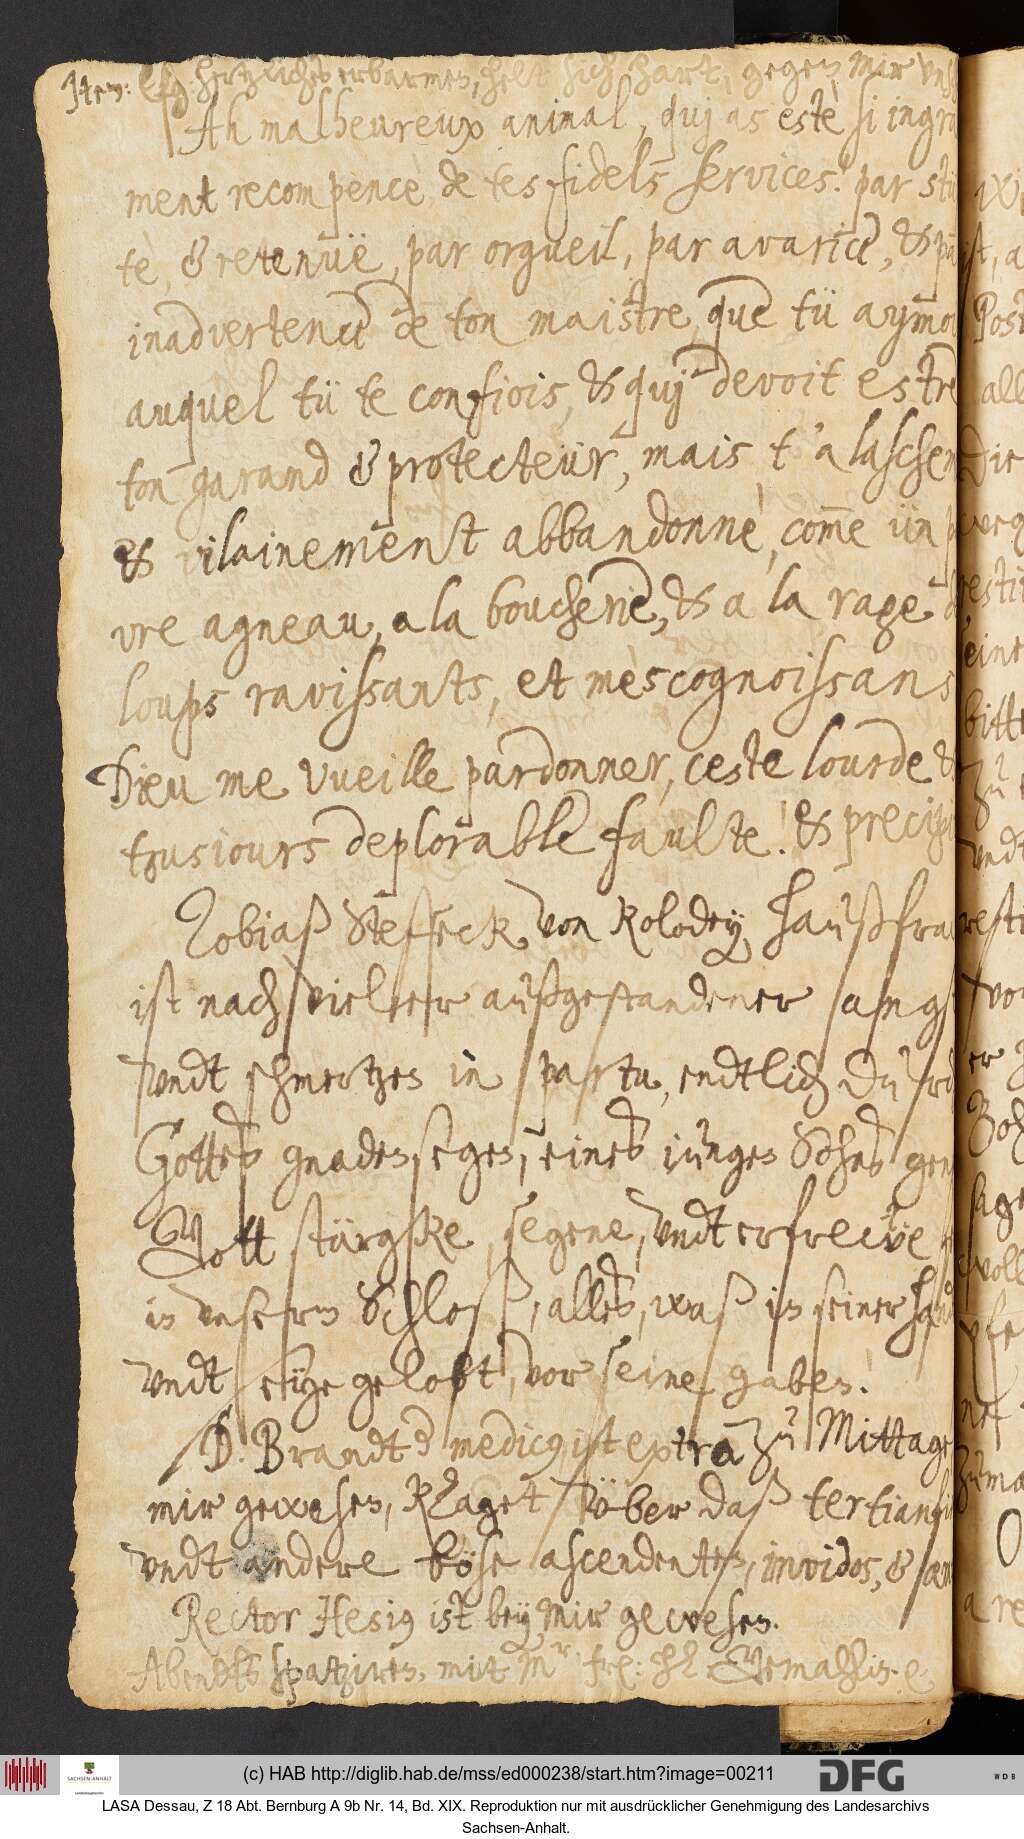 Jtem: Efg. hertzliches erbarmen, helt sich hart, gegen mir
Ah malheureux animal, quj as estè si ingra
ment recompencè de tes fidels services! par stü
tè, & retenüe, par orgueil, par avarice, & pa
inadvertence de ton maistre, que tü aymo
auquel tü te confiois, & quj devoit estre
ton garand & protecteür, mais t'a laschem
& vilainement abbandonnè, com̄e ün p
vre agneau, a la boucherie, & a la rage d
loups ravissants, et mèscognoissans
Dieu me vueille pardonner, ceste lourde &
tousiours deplorable faulte! & precipi
Tobiaß Steffeck von Kolodey haußfrau
ist nach vieler außgestandener angst
vndt schmertzen in partu, endtlich durch
Gottes gnadensegen, eines iungen Sohns gen
Gott stärgke, segene, vndt erfrewe
in vnserm Schloß, alles, waß in seiner handt
vndt seye gelobt, vor seine gaben.
D. Brandt medicus, ist extra zu Mittage
mir gewesen, klaget vber daß tertianfi
vndt andere böse ascendenten, invidos, &
Rector Hesius ist bey mir gewesen.
Abendts spatziret, mit Mr
(c) HAB http://diglib.hab.de/mss/ed000238/start.htm?image=00211
SACHSEN-ANHALT
DFG
WDB
LASA Dessau, Z 18 Abt. Bernburg A 9b Nr. 14, Bd. XIX. Reproduktion nur mit ausdrücklicher Genehmigung des Landesarchivs
Sachsen-Anhalt.